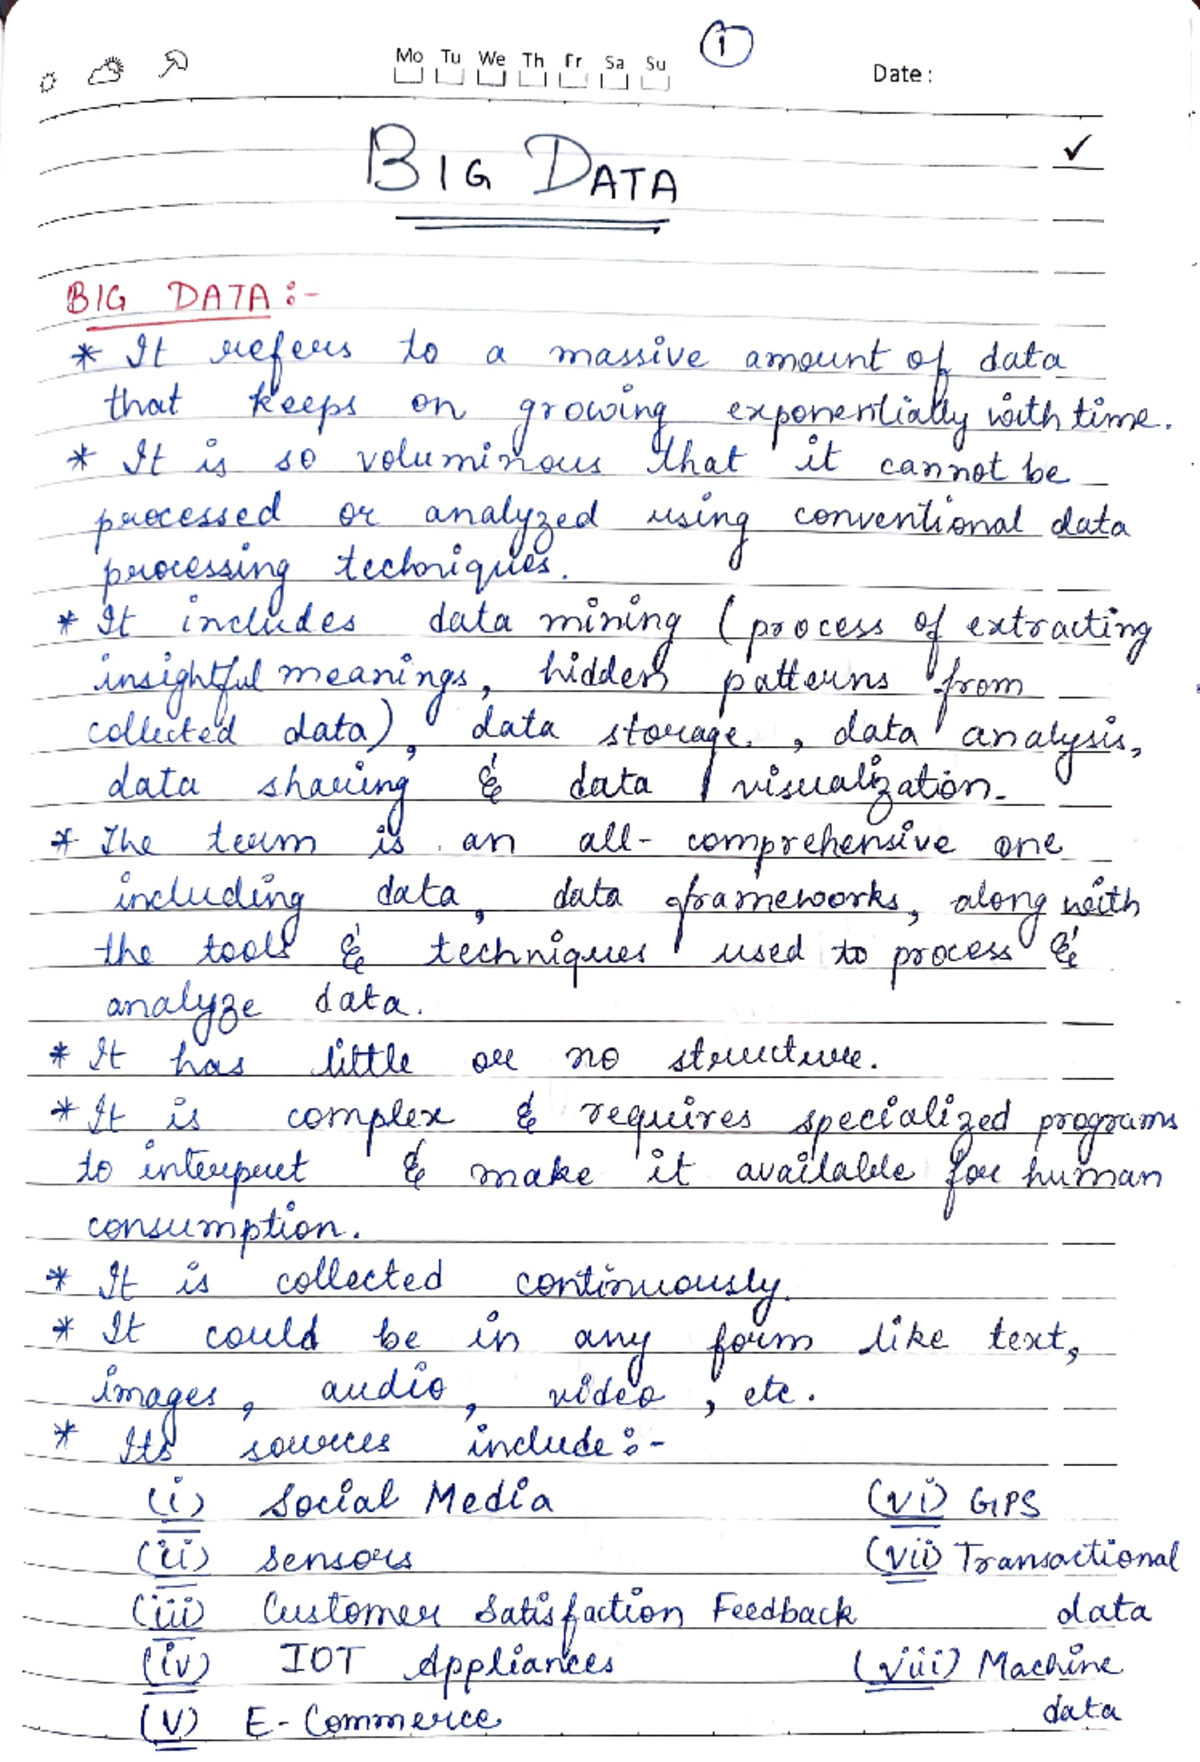 1
Mo Tu We Th Fr Sa Su
Date :
BIG DATA
BIG DATA :-
* It refers to a massive amount of data
that keeps on growing exponentially with time.
* It is so voluminous that it cannot be
processed or analyzed using conventional data
processing techniques.
* It includes data mining (process of extracting
insightful meanings, hidden patterns from
collected data), data storage, data analysis,
data sharing & data visualization.
* The term is an all-comprehensive one
including data, data frameworks, along with
the tools & techniques used to process &
analyze data.
* It has little or no structure.
* It is complex & requires specialized programs
to interpret & make it available for human
consumption.
* It is collected continuously.
* It could be in any form like text,
images, audio, video, etc.
* Its sources include :-
(i) Social Media (vi) GPS
(ii) Sensors (vii) Transactional
(iii) Customer Satisfaction Feedback data
(iv) IOT Appliances (viii) Machine
(v) E-Commerce data